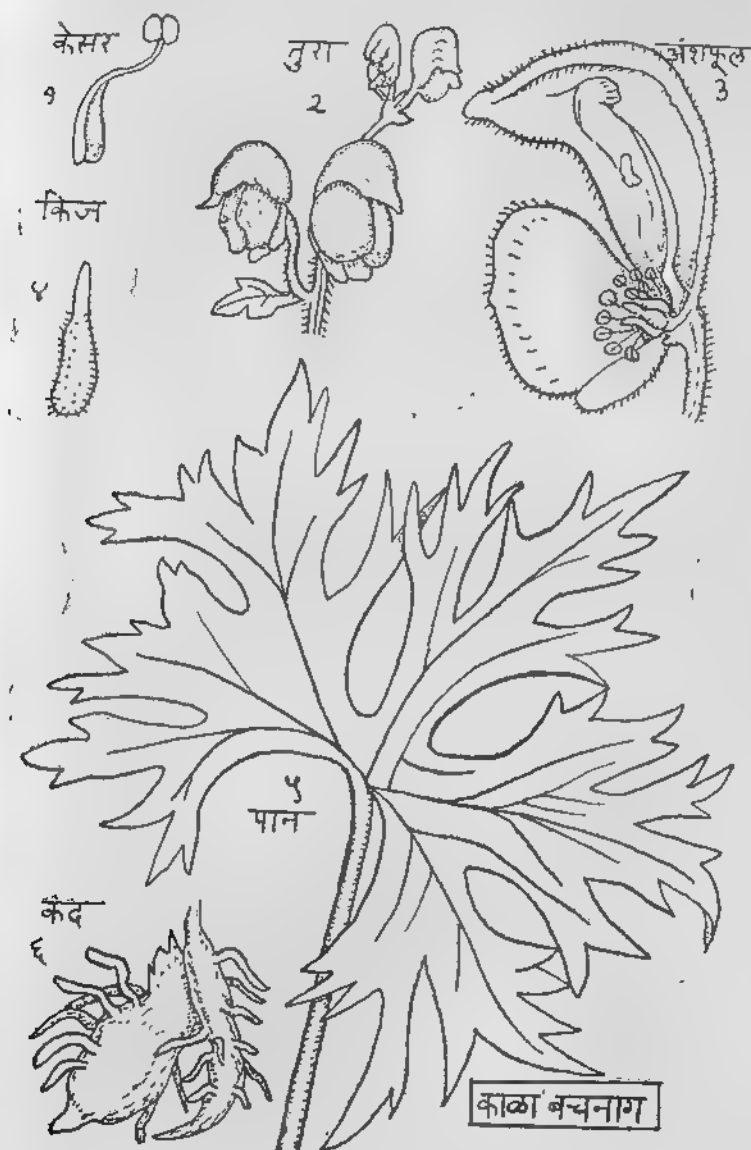 केसर
१
तुरा
२
अंशफूल
३
किंज
४
५
पान
कंद
६
काळा बचनाग